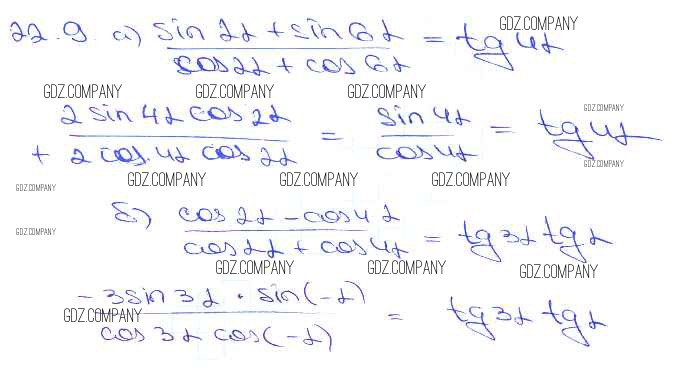 22.9. а) sin 2α + sin 6α / cos 2α + cos 6α = tg 4α
GDZ.COMPANY
GDZ.COMPANY GDZ.COMPANY GDZ.COMPANY
2 sin 4α cos 2α / + 2 cos. 4α cos 2α = sin 4α / cos 4α = tg 4α
GDZ.COMPANY
GDZ.COMPANY
GDZ.COMPANY GDZ.COMPANY GDZ.COMPANY
GDZ.COMPANY
б) cos 2α - cos 4α / cos 2α + cos 4α = tg 3α tg α
GDZ.COMPANY
GDZ.COMPANY GDZ.COMPANY GDZ.COMPANY
-3 sin 3α · sin(-α) / cos 3α cos(-α) = tg 3α tg α
GDZ.COMPANY